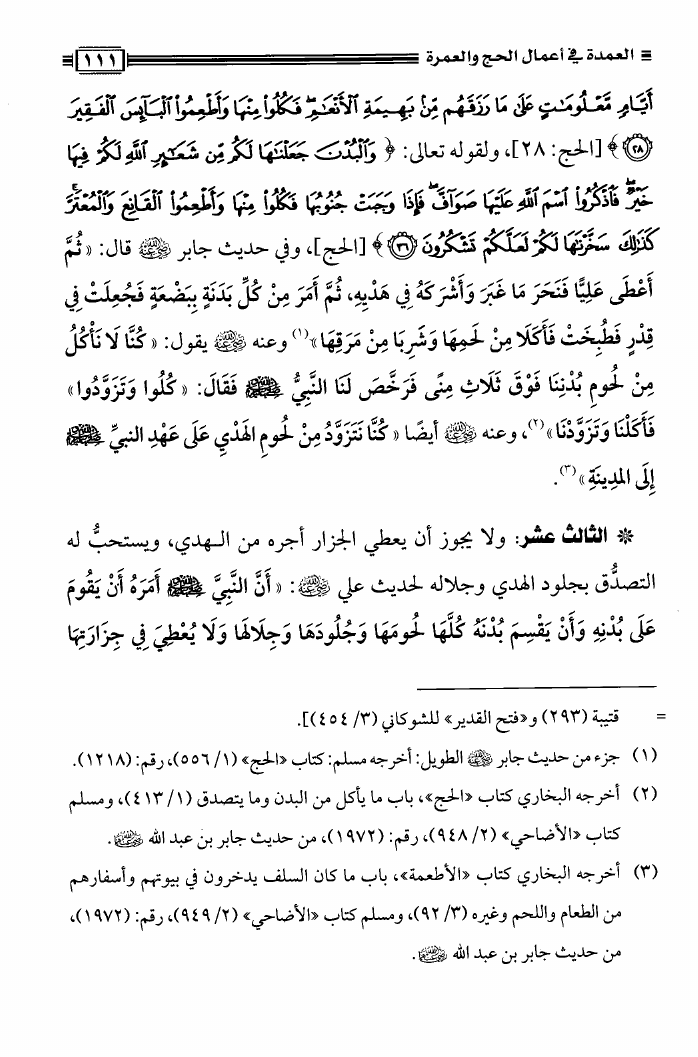 العمدة في أعمال الحج والعمرة ١١١
أَيَّامٍ مَّعْلُومَٰتٍ عَلَىٰ مَا رَزَقَهُم مِّنۢ بَهِيمَةِ ٱلْأَنْعَٰمِ ۖ فَكُلُوا۟ مِنْهَا وَأَطْعِمُوا۟ ٱلْبَآئِسَ ٱلْفَقِيرَ
﴿٢٨﴾ [الحج: ٢٨]، ولقوله تعالى: ﴿ وَٱلْبُدْنَ جَعَلْنَٰهَا لَكُم مِّن شَعَٰٓئِرِ ٱللَّهِ لَكُمْ فِيهَا
خَيْرٌ ۖ فَٱذْكُرُوا۟ ٱسْمَ ٱللَّهِ عَلَيْهَا صَوَآفَّ ۖ فَإِذَا وَجَبَتْ جُنُوبُهَا فَكُلُوا۟ مِنْهَا وَأَطْعِمُوا۟ ٱلْقَانِعَ وَٱلْمُعْتَرَّ ۚ
كَذَٰلِكَ سَخَّرْنَٰهَا لَكُمْ لَعَلَّكُمْ تَشْكُرُونَ ﴿٣٦﴾ [الحج]، وفي حديث جابر رضي الله عنه قال: «ثُمَّ
أَعْطَى عَلِيًّا فَنَحَرَ مَا غَبَرَ وَأَشْرَكَهُ فِي هَدْيِهِ، ثُمَّ أَمَرَ مِنْ كُلِّ بَدَنَةٍ بِبَضْعَةٍ فَجُعِلَتْ فِي
قِدْرٍ فَطُبِخَتْ فَأَكَلَا مِنْ لَحمِهَا وَشَرِبَا مِنْ مَرَقِهَا»(١) وعنه رضي الله عنه يقول: «كُنَّا لَا نَأْكُلُ
مِنْ لُحومِ بُدْنِنَا فَوْقَ ثَلَاثِ مِنًى فَرَخَّصَ لَنَا النَّبِيُّ ﷺ فَقَالَ: «كُلُوا وَتَزَوَّدُوا»
فَأَكَلْنَا وَتَزَوَّدْنَا»(٢)، وعنه رضي الله عنه أيضًا «كُنَّا نَتَزَوَّدُ مِنْ لُحومِ الهَدْيِ عَلَى عَهْدِ النبيِّ ﷺ
إِلَى المدِينَةِ»(٣).
* الثالث عشر: ولا يجوز أن يعطي الجزار أجره من الـهدي، ويستحبُّ له
التصدُّق بجلود الهدي وجلاله لحديث علي رضي الله عنه: «أَنَّ النَّبِيَّ ﷺ أَمَرَهُ أَنْ يَقُومَ
عَلَى بُدْنِهِ وَأَنْ يَقْسِمَ بُدْنَهُ كُلَّهَا لُحومَهَا وَجُلُودَهَا وَجِلَالهَا وَلَا يُعْطِيَ فِي جِزَارَتِهَا
= قتيبة (٢٩٣) و«فتح القدير» للشوكاني (٣/ ٤٥٤)].
(١) جزء من حديث جابر رضي الله عنه الطويل: أخرجه مسلم: كتاب «الحج» (١/ ٥٥٦)، رقم: (١٢١٨).
(٢) أخرجه البخاري كتاب «الحج»، باب ما يأكل من البدن وما يتصدق (١/ ٤١٣)، ومسلم
كتاب «الأضاحي» (٢/ ٩٤٨)، رقم: (١٩٧٢)، من حديث جابر بن عبد الله رضي الله عنهما.
(٣) أخرجه البخاري كتاب «الأطعمة»، باب ما كان السلف يدخرون في بيوتهم وأسفارهم
من الطعام واللحم وغيره (٣/ ٩٢)، ومسلم كتاب «الأضاحي» (٢/ ٩٤٩)، رقم: (١٩٧٢)،
من حديث جابر بن عبد الله رضي الله عنهما.